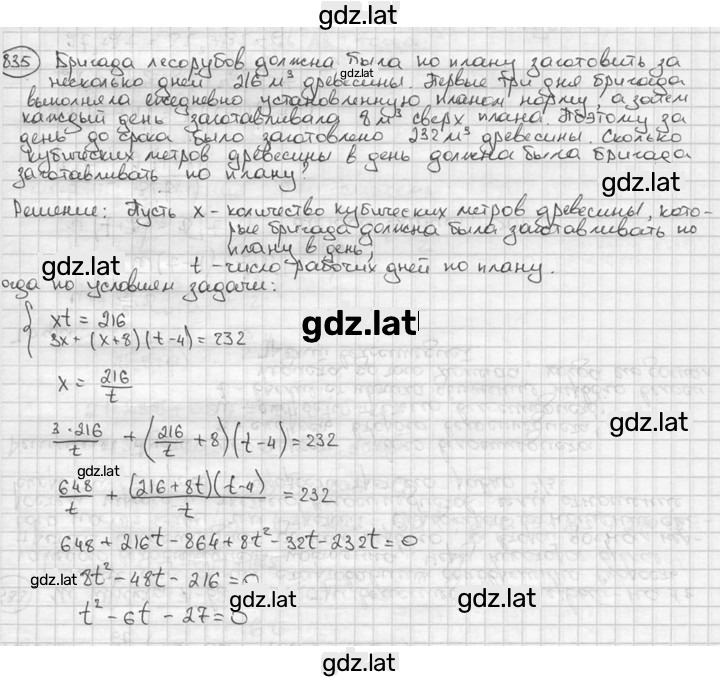 gdz.lat
835 Бригада лесорубов должна была по плану заготовить за
несколько дней 216 м³ древесины. Первые три дня бригада
gdz.lat
выполняла ежедневно установленную планом норму, а затем
каждый день заготавливала 8 м³ сверх плана. Поэтому за
день до срока было заготовлено 232 м³ древесины. Сколько
кубических метров древесины в день должна была бригада
заготавливать по плану?
gdz.lat
Решение: Пусть x - количество кубических метров древесины, кото-
рые бригада должна была заготавливать по
плану в день,
gdz.lat
t - число рабочих дней по плану.
огда по условиям задачи:
xt = 216
gdz.lat
3x + (x+8)(t-4) = 232
x = 216/t
gdz.lat
3·216/t + (216/t + 8)(t-4) = 232
gdz.lat
648/t + (216+8t)(t-4)/t = 232
648 + 216t - 864 + 8t² - 32t - 232t = 0
gdz.lat 8t² - 48t - 216 = 0
gdz.lat
gdz.lat
t² - 6t - 27 = 0
gdz.lat